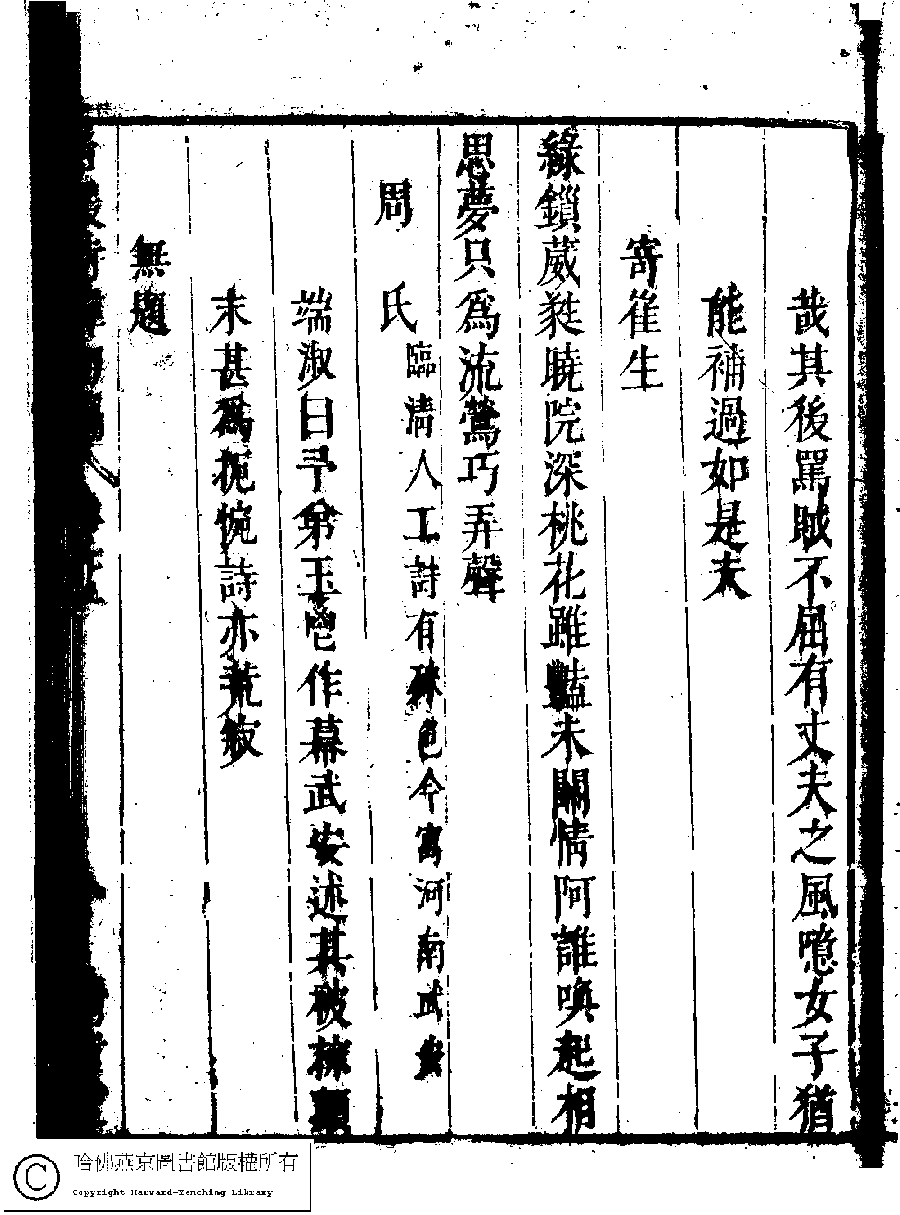 哉其後罵賊不屈有丈夫之風噫女子猶
能補過如是夫
寄崔生
綠鎖葳蕤曉院深桃花雖豔未關情阿誰喚起相
思夢只為流鶯巧弄聲
周氏 臨清人工詩有 色今寓河南武安
端淑曰予弟玉 作幕武安述其被擄顛
末甚為扼惋詩亦荒寂
無題
哈佛燕京圖書館版權所有
Copyright Harvard-Yenching Library